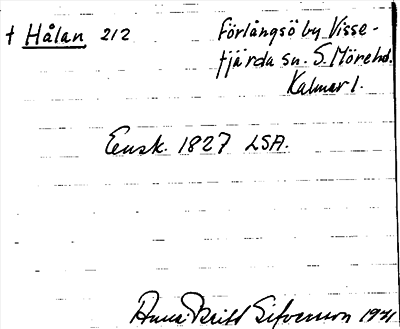 † Hålan 212 Förlångsö by, Visse-
fjärda sn. S. Möre hd.
Kalmar l.
Ensk. 1827 LSA.
Anna-Britt Sifversson 1971